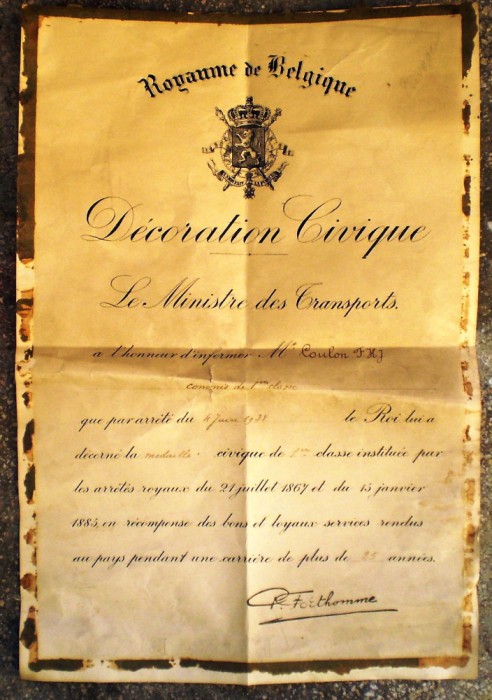 Royaume de Belgique
Décoration Civique
Le Ministre des Transports.
a l'honneur d'informer Mr Coulon F H J
commis de 1ère classe
que par arrêté du juin 1938 le Roi lui a
décerné la médaille civique de 1ère classe instituée par
les arrêtés royaux du 21 juillet 1867 et du 15 janvier
1885, en récompense des bons et loyaux services rendus
au pays pendant une carrière de plus de 25 années.
P. Forthomme